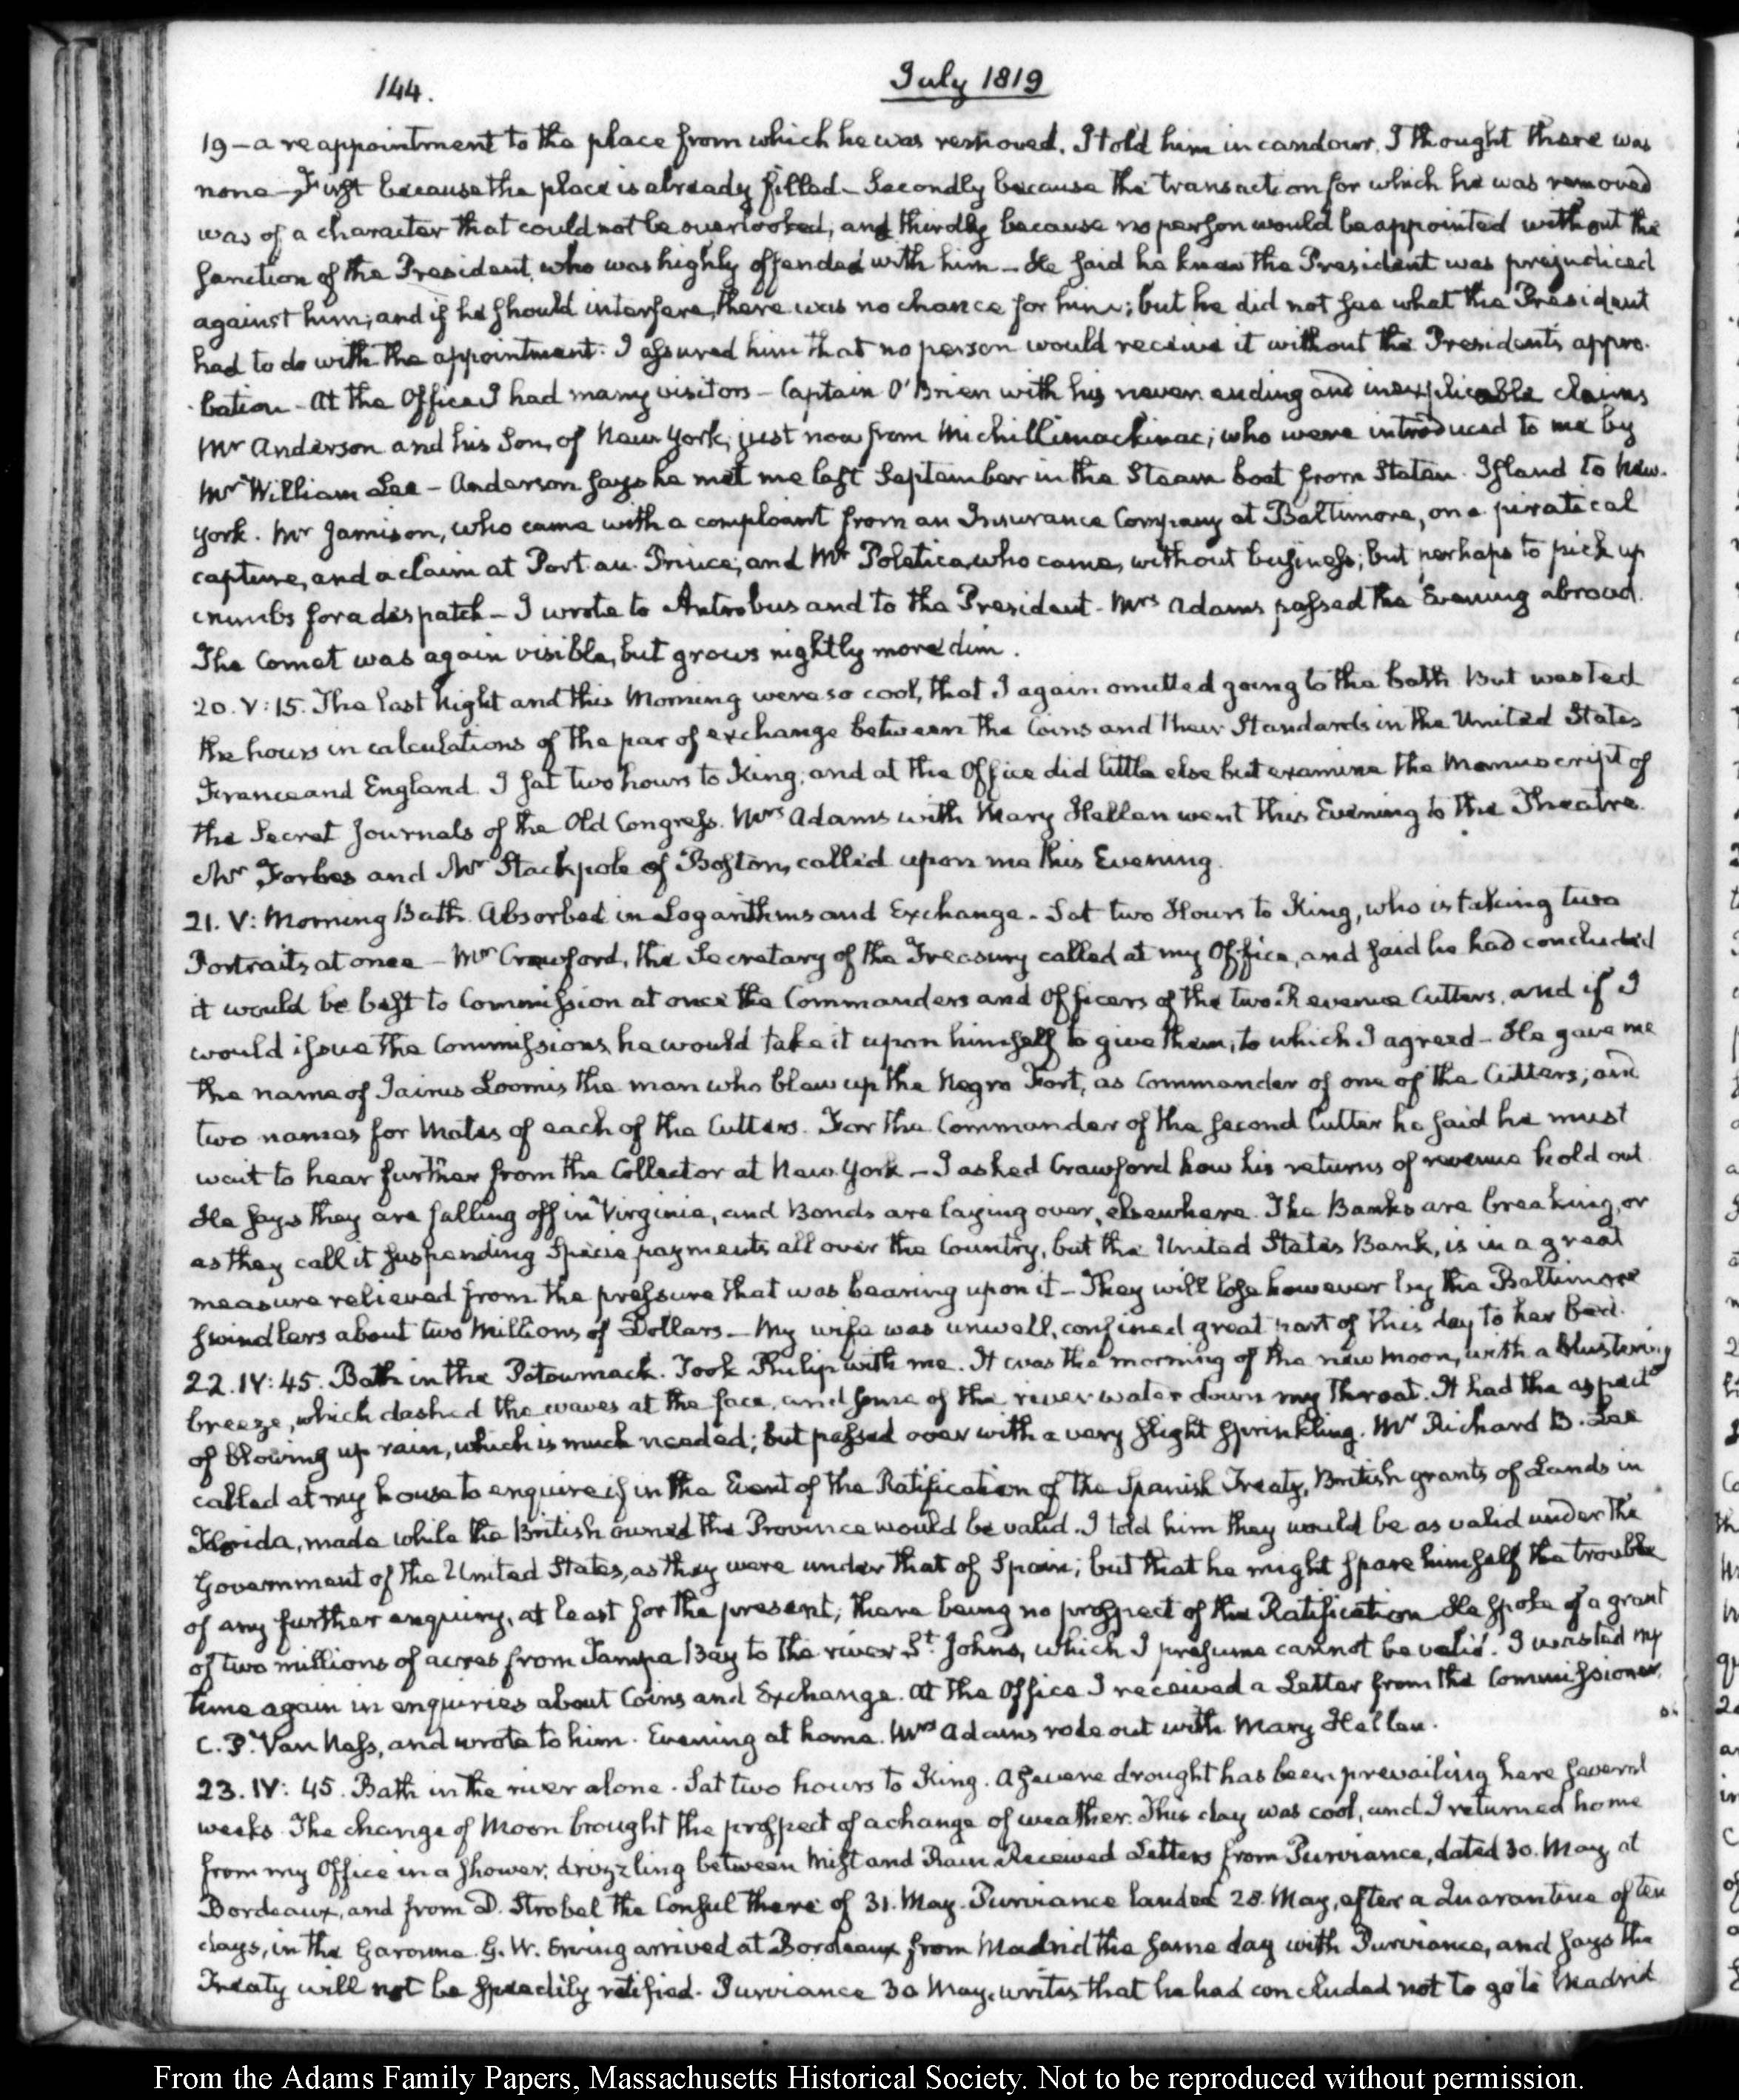 144.
July 1819
19 – a reappointment to the place from which he was removed. I told him in candour, I thought there was
none – First because the place is already filled – Secondly because the transaction for which he was removed
was of a character that could not be overlooked, and thirdly because no person would be appointed without the
sanction of the President, who was highly offended with him – He said he knew the President was prejudiced
against him; and if he should interfere, there was no chance for him; but he did not see what the President
had to do with the appointment. I assured him that no person would receive it without the Presidents appro-
bation – At the Office I had many visitors – Captain O'Brien with his never ending and inexplicable claims
Mr Anderson and his Son, of New York, just now from Michillimackinac; who were introduced to me by
Mr William Lee – Anderson says he met me last September in the Steam boat from Staten Island to New-
York. Mr Jamison, who came with a complaint from an Insurance Company at Baltimore, on a piratical
capture, and a claim at Port au Prince; and Mr Poletica, who came, without business; but perhaps to pick up
crumbs for a dispatch – I wrote to Antrobus and to the President – Mrs Adams passed the Evening abroad.
The Comet was again visible, but grows nightly more dim.
20. V:15. The last Night and this Morning were so cool, that I again omitted going to the bath But wasted
the hours in calculations of the par of exchange between the Coins and their Standards in the United States
France and England. I sat two hours to King; and at the Office did little else but examine the Manuscript of
the Secret Journals of the Old Congress. Mrs Adams with Mary Hellen went this Evening to the Theatre.
Mr Forbes and Mr Stackpole of Boston, called upon me this Evening.
21. V: Morning Bath. Absorbed in Logarithms and Exchange – Sat two Hours to King, who is taking two
Portraits at once – Mr Crawford, the Secretary of the Treasury called at my Office, and said he had concluded
it would be best to Commission at once the Commanders and Officers of the two Revenue Cutters, and if I
would issue the Commissions, he would take it upon himself to give them; to which I agreed – He gave me
the name of Jairus Loomis the man who blew up the Negro Fort, as Commander of one of the Cutters; and
two names for Mates of each of the Cutters. For the Commander of the second Cutter he said he must
wait to hear further from the Collector at New York – I asked Crawford how his returns of revenue hold out
He says they are falling off in Virginia, and Bonds are laying over, elsewhere. The Banks are breaking, or
as they call it suspending Specie payments all over the Country, but the United States Bank, is in a great
measure relieved from the pressure that was bearing upon it – They will lose however by the Baltimore
swindlers about two Millions of Dollars – My wife was unwell, confined great part of this day to her bed.
22. IV:45. Bath in the Potowmack. Took Philip with me. It was the morning of the new Moon, with a blustering
breeze, which dashed the waves at the face, and some of the river water down my throat. It had the aspect
of blowing up rain, which is much needed; but passed over with a very slight sprinkling. Mr Richard B. Lee
called at my house to enquire if in the Event of the Ratification of the Spanish Treaty, British grants of Lands in
Florida, made while the British owned the Province would be valid. I told him they would be as valid under the
Government of the United States, as they were under that of Spain; but that he might spare himself the trouble
of any further enquiry, at least for the present; there being no prospect of the Ratification He spoke of a grant
of two millions of acres from Tampa Bay to the river St. Johns, which I presume cannot be valid. I wasted my
time again in enquiries about Coins and Exchange. At the Office I received a Letter from the Commissioner,
C. P. Van Ness, and wrote to him. Evening at home. Mrs Adams rode out with Mary Hellen.
23. IV:45. Bath in the river alone. Sat two hours to King. A severe drought has been prevailing here several
weeks. The change of Moon brought the prospect of a change of weather. This day was cool, and I returned home
from my Office in a shower, drizzling between Mist and Rain Received Letters from Purviance, dated 30. May at
Bordeaux, and from D. Strobel the Consul there of 31. May. Purviance landed 28. May, after a Quarantine of ten
days, in the Garonne. G. W. Erving arrived at Bordeaux from Madrid the same day with Purviance, and says the
Treaty will not be speedily ratified. Purviance 30 May, writes that he had concluded not to go to Madrid
From the Adams Family Papers, Massachusetts Historical Society. Not to be reproduced without permission.